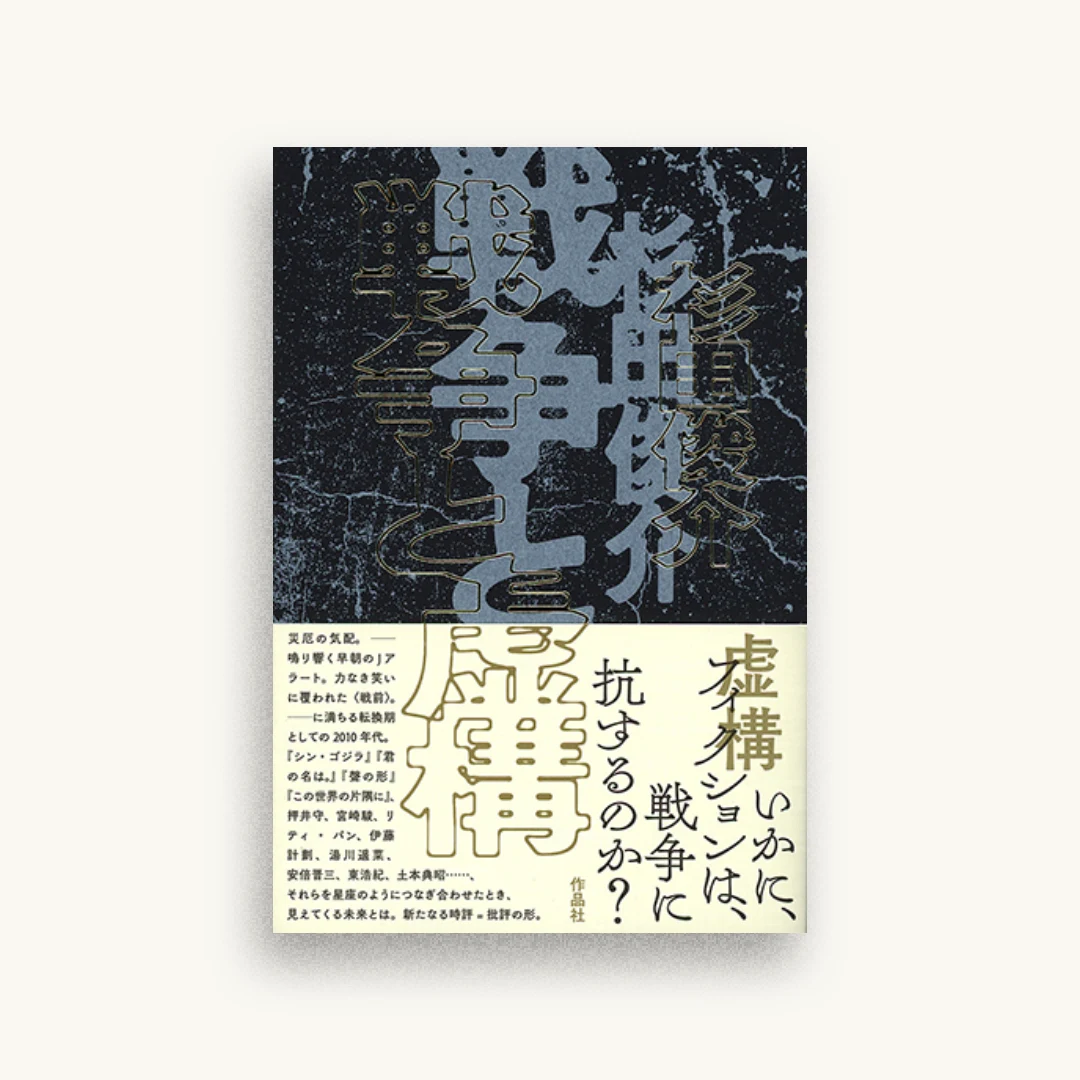 杉田俊介
戦争と虚構
いかに、
虚構
フィクションは、
戦争に
抗するのか?
作品社
災厄の気配。――
鳴り響く早朝のJア
ラート。力なき笑い
に覆われた〈戦前〉。
――に満ちる転換期
としての2010年代。
『シン・ゴジラ』『君
の名は。』『聲の形』
『この世界の片隅に』、
押井守、宮崎駿、リ
ティ・パン、伊藤
計劃、湯川遥菜、
安倍晋三、東浩紀、土本典昭……、
それらを星座のようにつなぎ合わせたとき、
見えてくる未来とは。新たなる時評=批評の形。